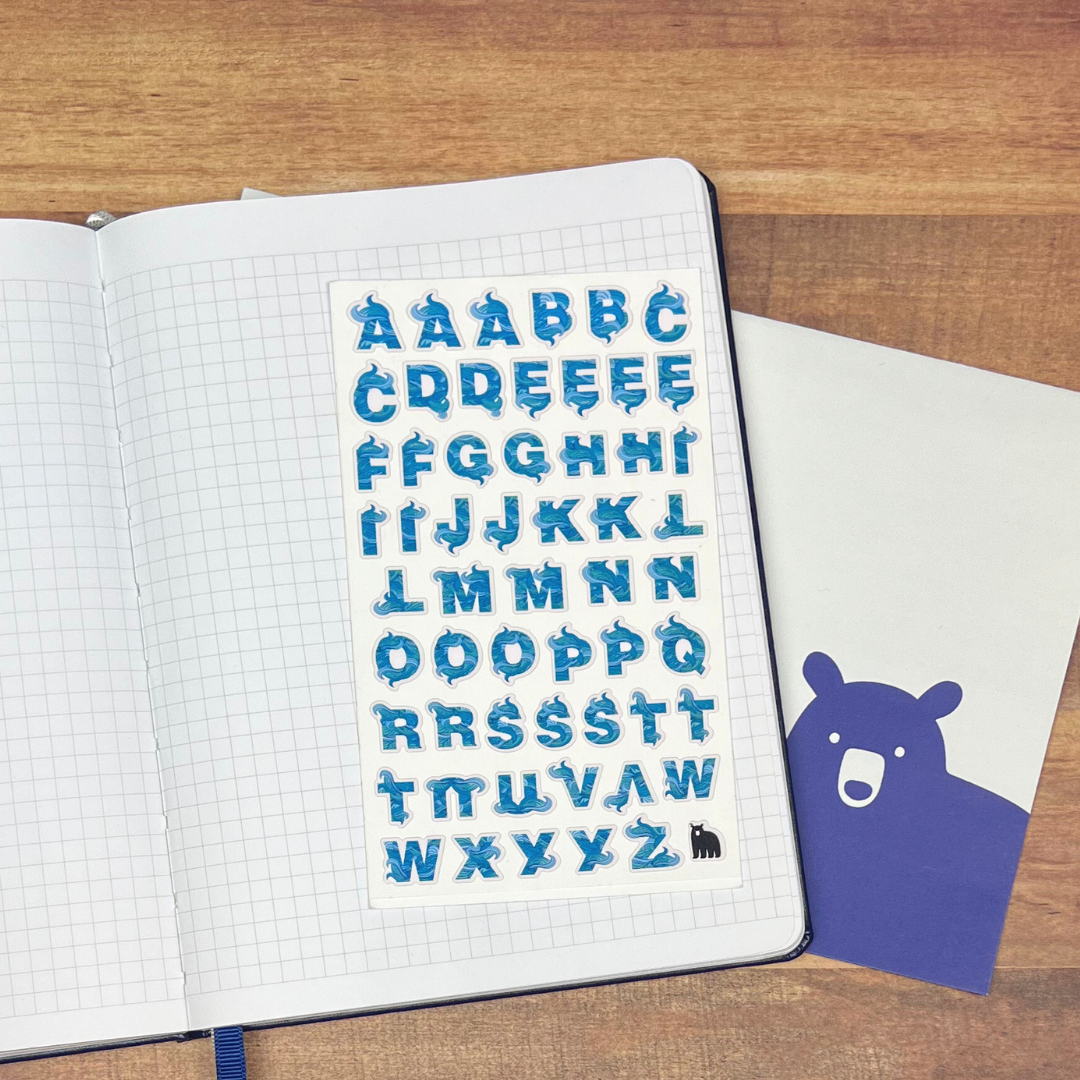 A A A B B C
C D D E E E E
F F G G H H I
I I J J K K L
L M M N N
O O O P P Q
R R S S S T T
T U U V V W
W X Y Y Z